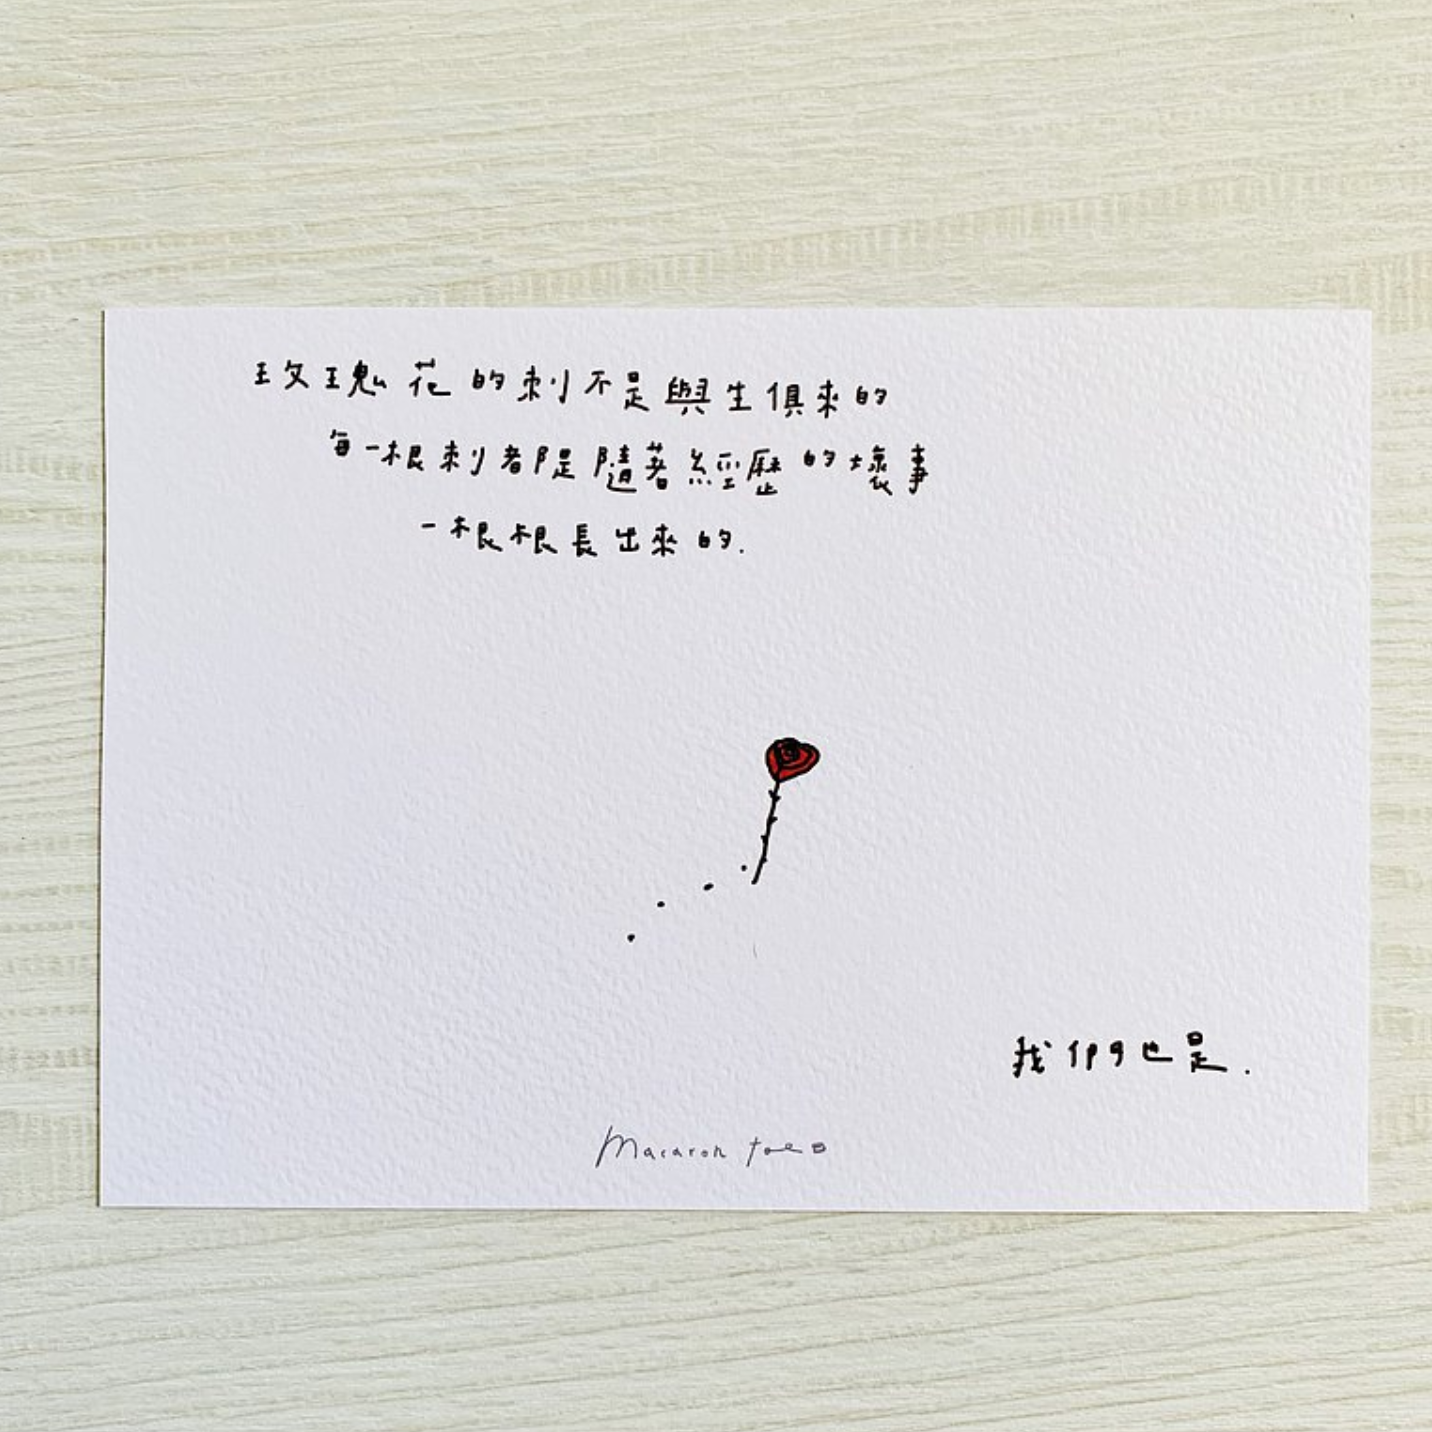 玫瑰花的刺不是與生俱來的
每一根刺都是隨著經歷的壞事
一根根長出來的.
我們也是.
Macaron toe